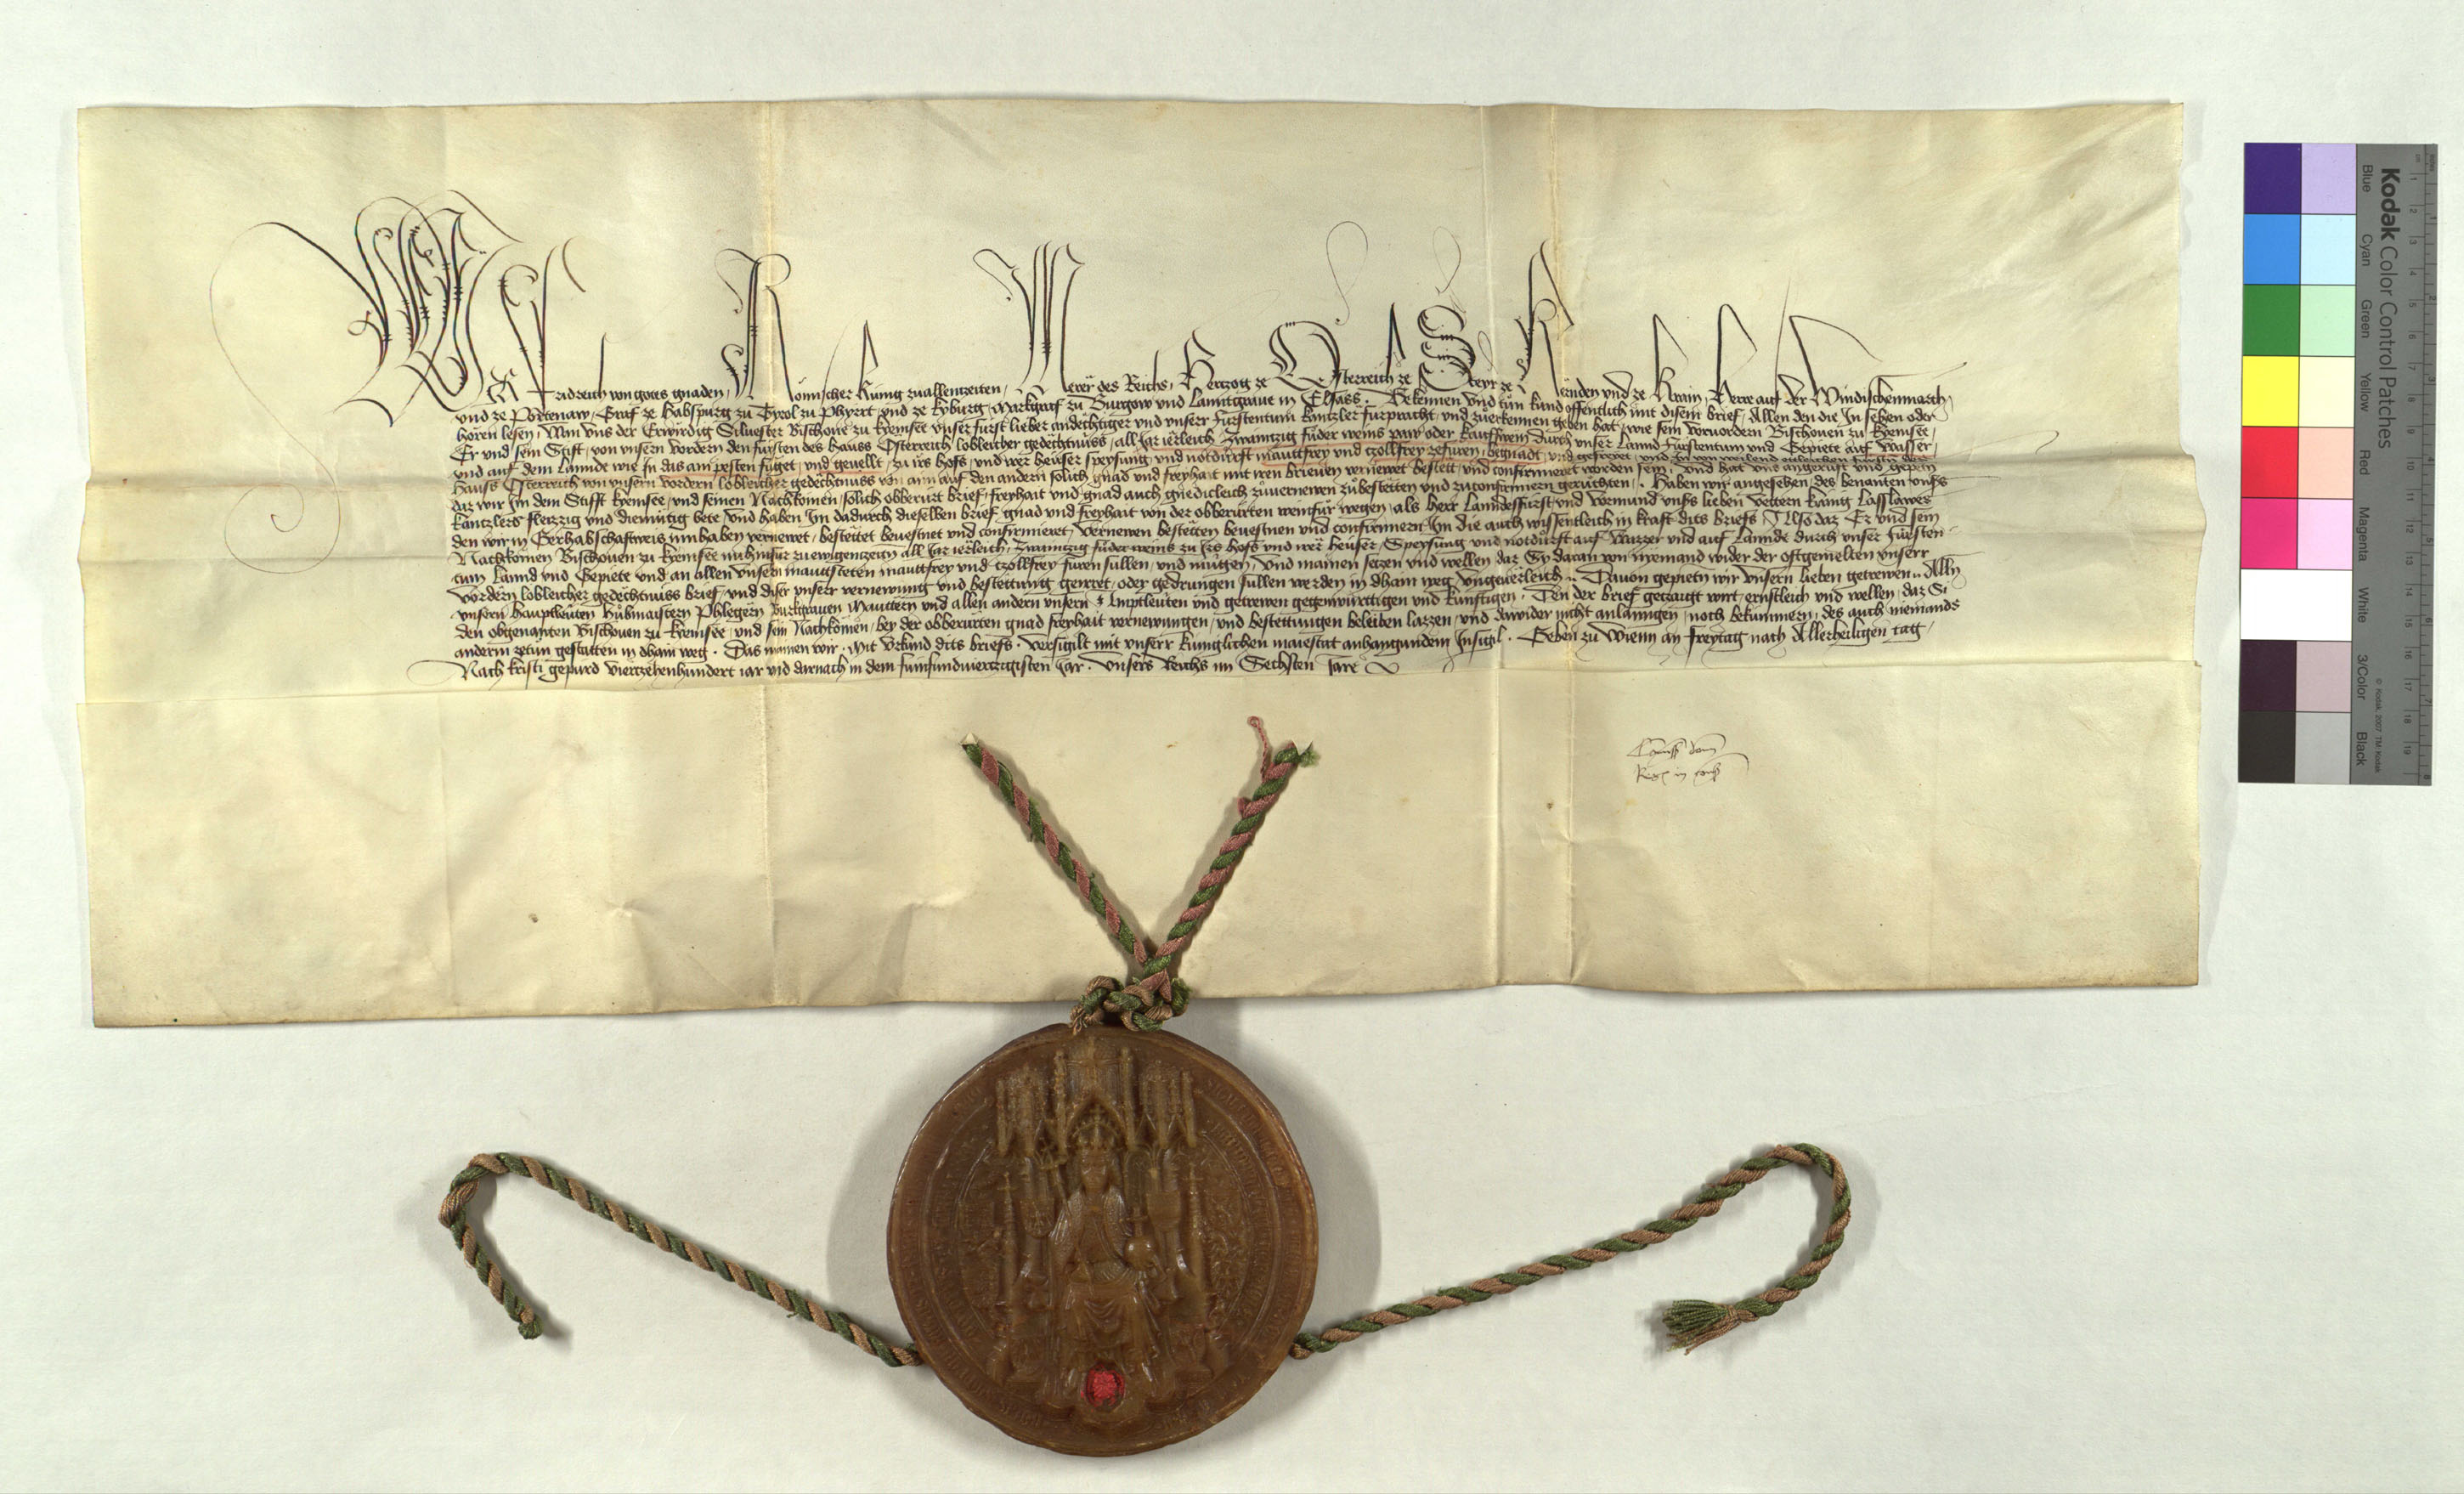 Wir Fridreich von gotes gnaden, Römischer Kunig zuallenntzeiten, Merer des Reichs, Hertzog ze Österreich ze Steyr ze Kernden vnd ze Krain, Herre auf der Windischenmarch,
vnd ze Portenaw, Graf ze Habspurg zu Tyrol zu Phyrrt vnd ze Kyburg, Markgraf zu Burgow vnd Lanntgraue in Elsass. Bekennen vnd tün kund offentlich mit disem brief, Allen den die In sehen oder
hören lesen, Wan vns der Erwirdig Siluester Bischoue zu Kyemsee vnser furst lieber andechtiger vnd vnser furstentum kantzler furpracht, vnd zuerkennen geben hat, wie sein Voruordern Bischouen zu Kyemsee,
Er vnd sein Stift, von vnsern vordern den fürsten des hauss Österreich lobleicher gedechtnuss, all Jar ierleich Zwaintzig füder weins paw oder kauffwein durch vnser Lannd Fürstentum vnd Gepiete auf wasser
vnd auf dem Lannde wie In das am pesten füget, vnd geuellt, zu irs hofs, vnd irer heuser speysung, vnd notdurft mauttfrey vnd tzollfrey zefuren, begnadt, vnd gefreyet, vnd In von weilend
hauss Österreich von vnsern vordern lobleicher gedechtnuss von aim auf den andern solich gnad vnd freyhait mit iren brieuen vernewet bestett, vnd confirmieret worden sein, vnd hat vns angerüft vnd gepetn
daz wir Im dem Stifft Kyemsee, vnd seinen Nachkomen, solich obberurt brief, freyhait vnd gnad auch gnediclich zuuernewen zubestetten vnd zuconfirmiern geruchten. Haben wir angesehen, des benanten vnsers
kantzlers fleizzig vnd diemütig bete, vnd haben Im dadurch dieselben brief gnad vnd freyhait von der obberurten weinfur wegen, als herr Lanndesfürst, vnd Vormund vnsers lieben Vettern kunig Lasslawes
den wir in Gerhabschaftweis innhaben vernewet, bestettet beuestnet vnd confirmieret, Vernewen bestetten beuestnen vnd confirmiern Im die auch wissentleich in kraft dits briefs, Also daz Er vnd sein
Nachkomen Bischouen zu Kyemsee nu hinfür zu ewigenzeitn all Jar ierleich, Zwaintzig füder weins zu Irs hofs vnd irer heuser, Speysung vnd notdurft auf wazzer vnd auf Lannde durch vnser Fürsten-
tum Lannd vnd Gepiete vnd an allen vnsern mauttsteten mauttfrey vnd tzollfrey furen sullen, vnd mügen, Vnd mainen setzen vnd wellen daz Sy daran von nyemand wider der oftgemelten vnserr
vordern lobleicher gedechtnuss brief, vnd diser vnser vernewung vnd bestettung geirret, oder gedrungen sullen werden in dhain weg, Vngeuerleich. Dauon gepietn wir vnsern lieben getrewen Alln
vnsern haupleüten Hübmaistern Phlegern Burkgrauen Mauttern vnd allen andern vnsern Amptleuten vnd getrewen gegenwurttigen vnd künftigen. Den der brief getzaigt wirt, ernstleich vnd wellen, daz Si
den obgenanten Bischouen zu Kyemsee, vnd sein Nachkomen, bey der obberurten gnad freyhait vernewungen, vnd bestettungen beleiben lazzen, vnd dawider nicht anlanngen, noch bekummern, des auch niemands
andern zetun gestatten in dhain weg. Das mainen wir. Mit Vrkund dits briefs. Versigilt mit vnserr kuniglichen maiestat anhangundem Insigil. Geben zu Wienn an freytag nach Allerheiligen tag,
Nach kristi gepurd Viertzehenhundert iar vnd darnach in dem funfundviertzigisten Jar. Vnsers Reichs im Sechsten Jare
Kodak Color Control Patches
Blue Cyan Green Yellow Red Magenta White 3/Color Black
© Kodak, 2007 TM: Kodak